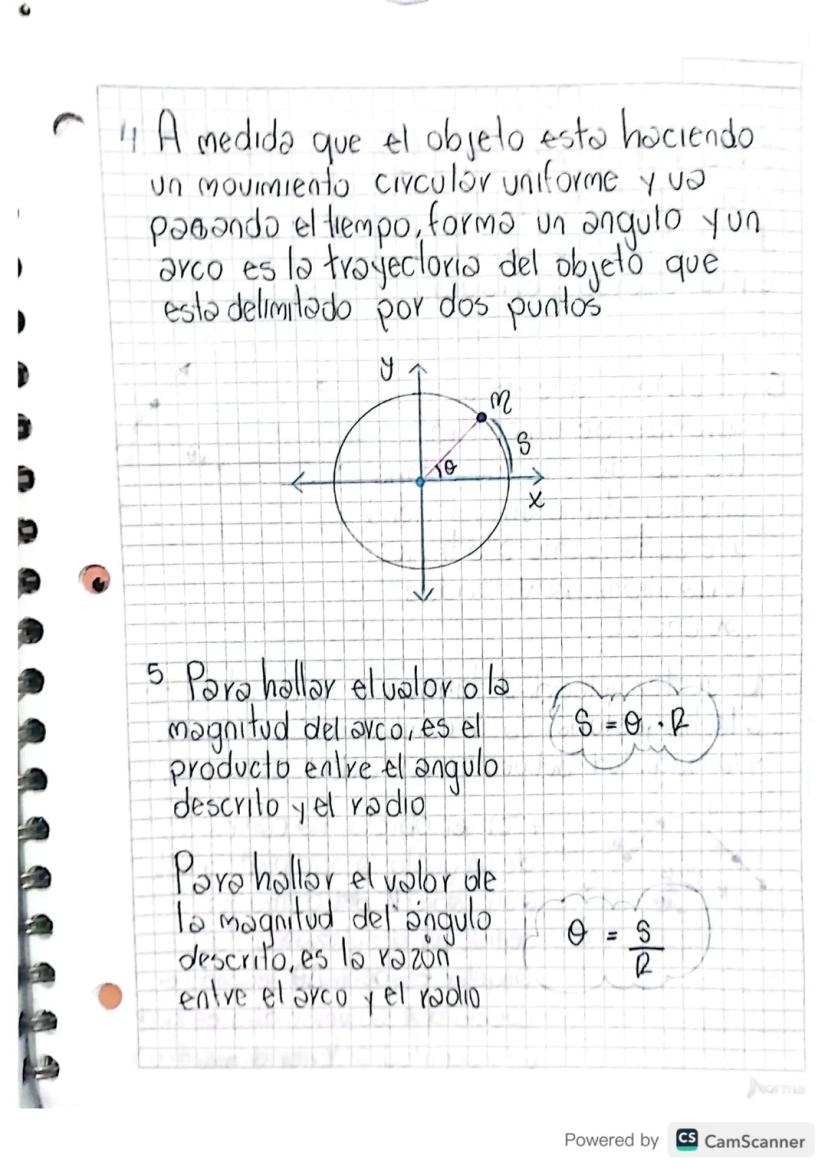 4 A medida que el objeto esta haciendo
un movimiento circular uniforme y va
pasando el tiempo, forma un angulo y un
arco es la trayectoria del objeto que
esta delimitado por dos puntos
y
m
S
θ
x
5 Para hallar el valor o la
magnitud del arco, es el
producto entre el angulo
descrito y el radio
S = θ · R
Para hallar el valor de
la magnitud del ángulo
descrito, es la razón
entre el arco y el radio
θ = S
R
Norma
Powered by CS CamScanner